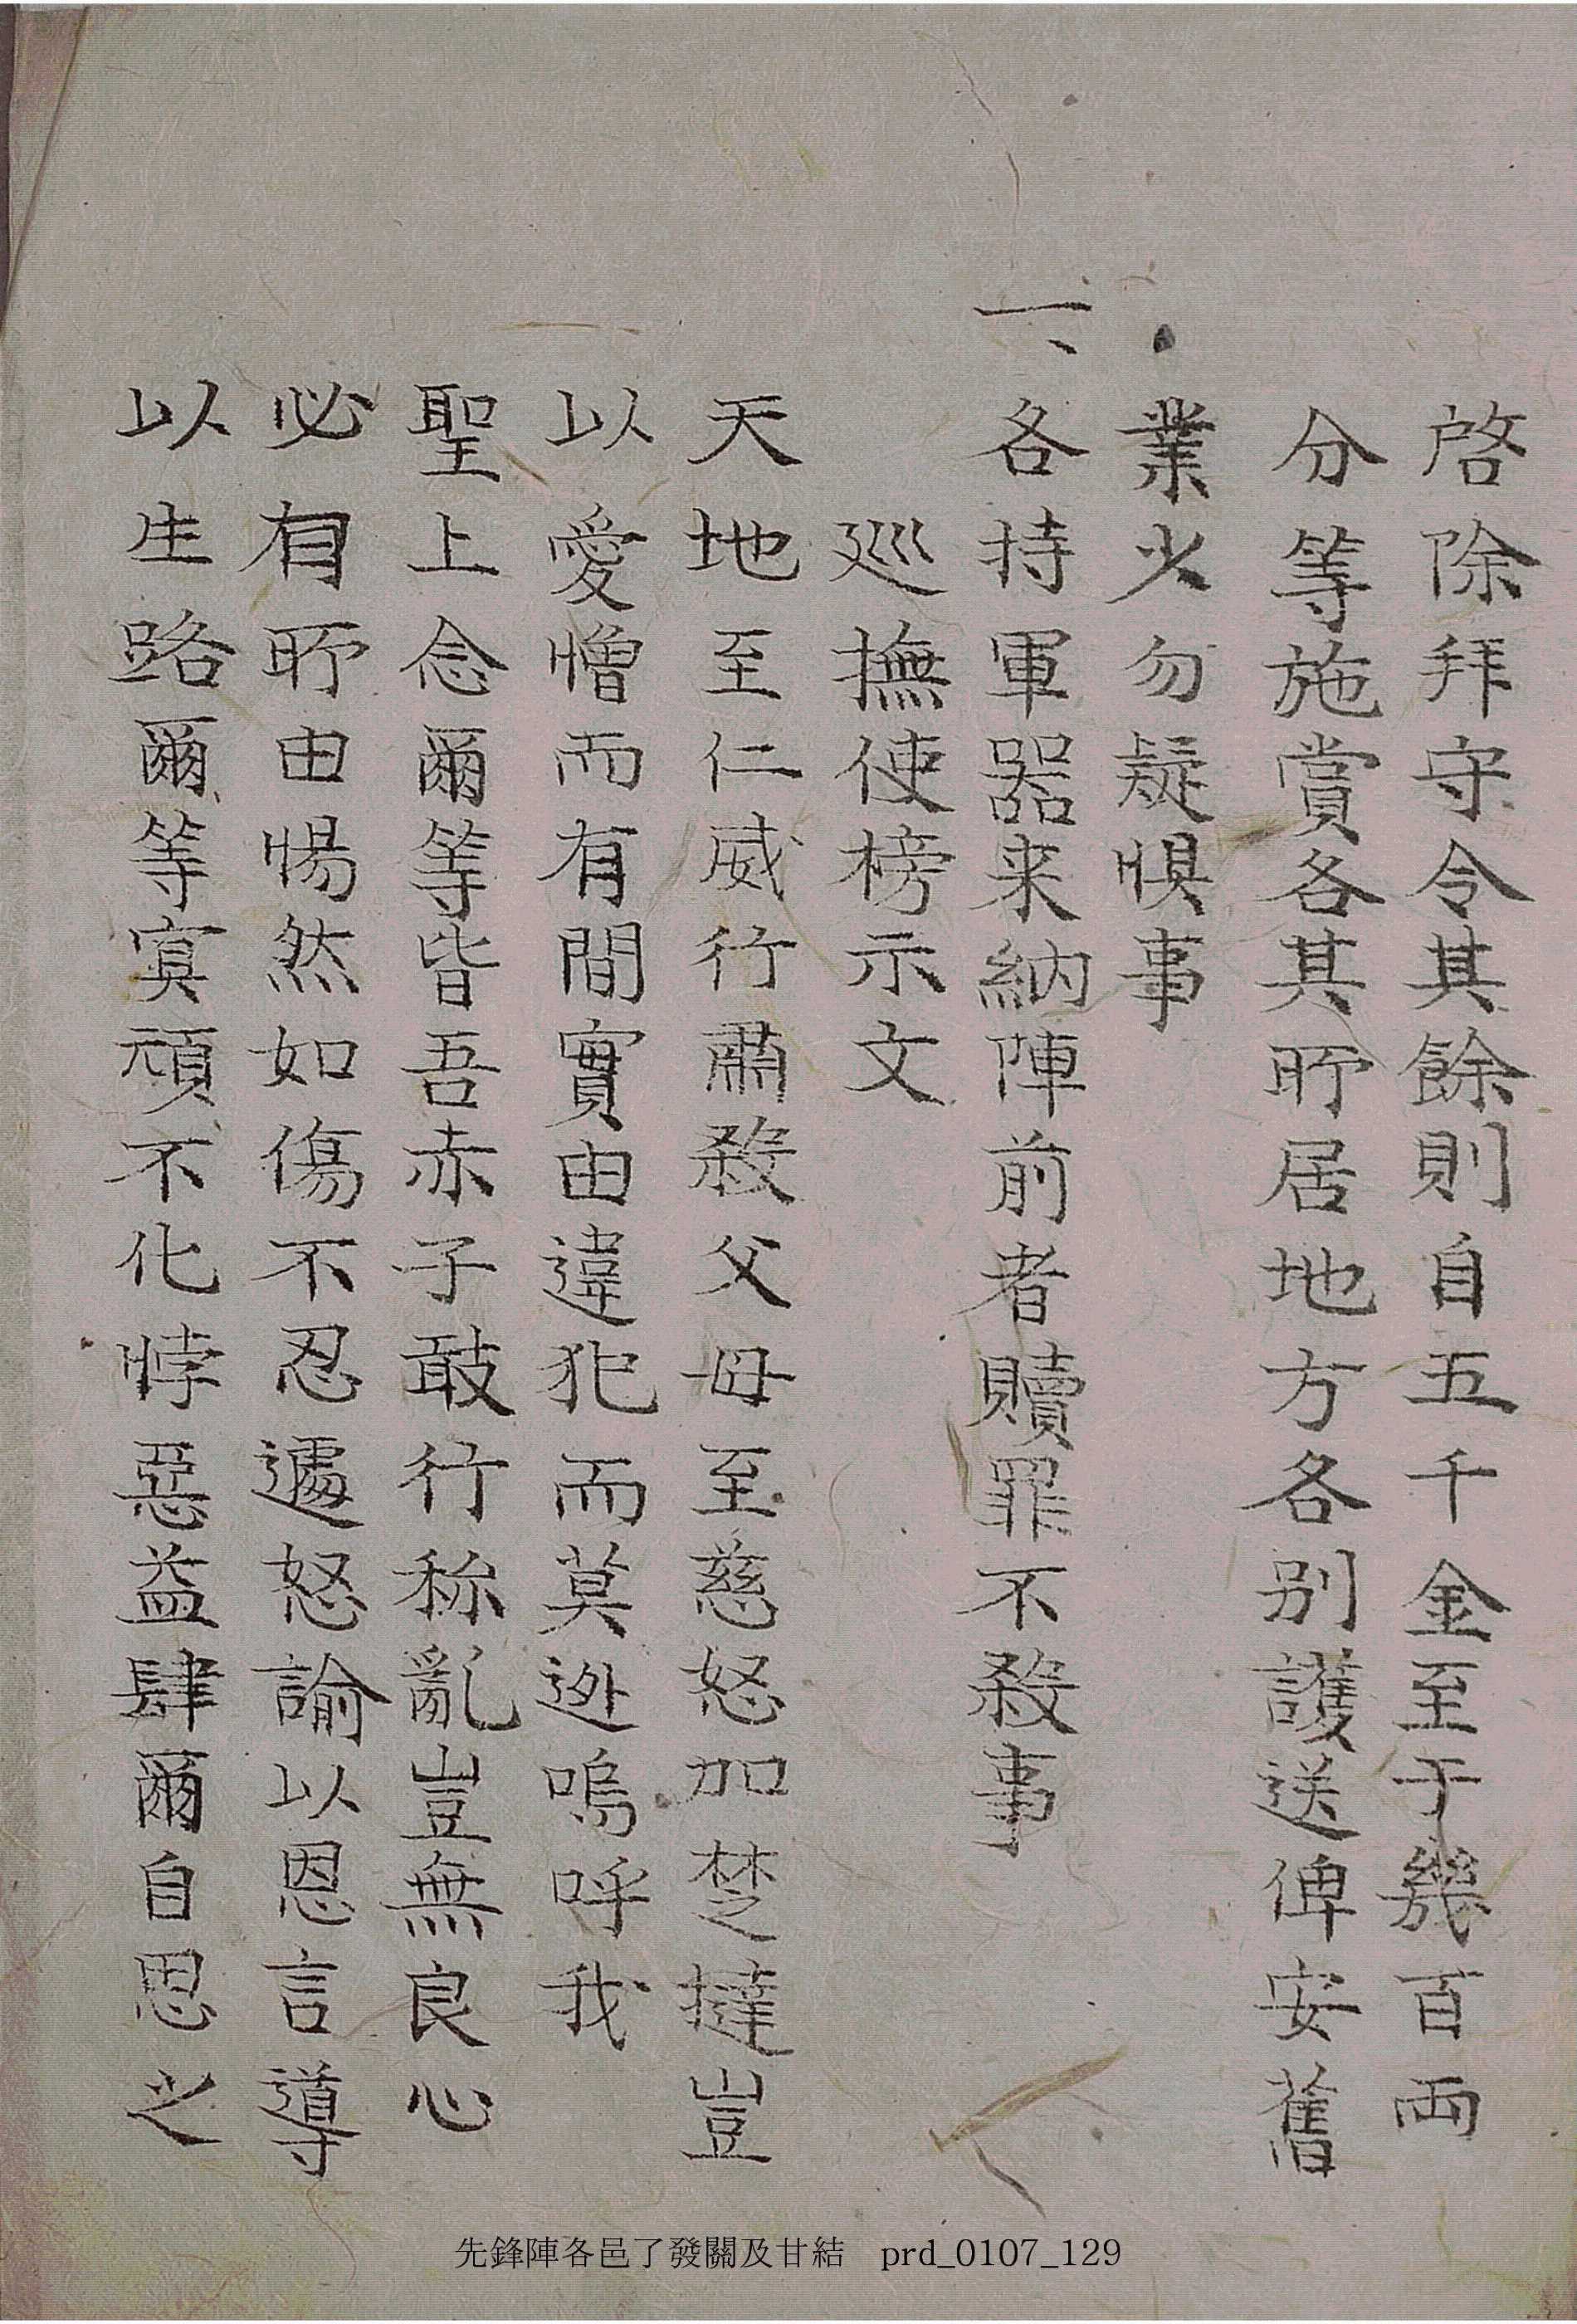 啓除拜守令其餘則自五千金至于幾百両
分等施賞各其所居地方各別護送俾安舊
業火勿疑惧事
一、各持軍器来納陣前者贖罪不殺事
巡撫使榜示文
天地至仁威行肅殺父母至慈怒加楚撻豈
以愛憎而有間實由違犯而莫逃嗚呼我
聖上念爾等皆吾赤子敢行称亂豈無良心
必有所由惕然如傷不忍遽怒諭以恩言導
以生路爾等寘頑不化悖惡益肆爾自思之
先鋒陣各邑了發關及甘結 prd_0107_129